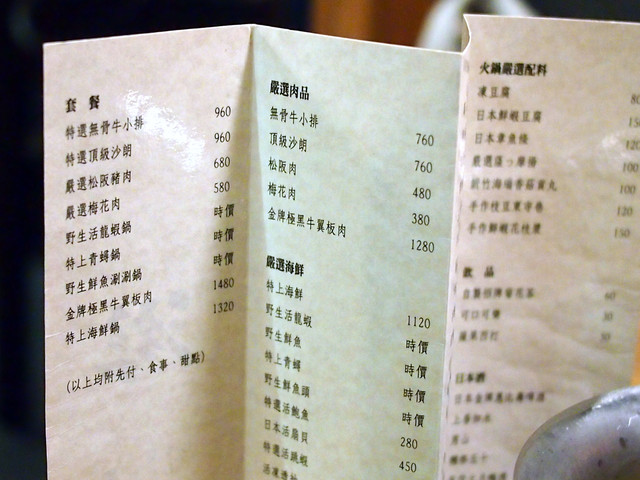 套餐
特選無骨牛小排 960
特選頂級沙朗 960
嚴選松阪豬肉 680
嚴選梅花肉 580
野生活龍蝦鍋 時價
特上青蟳鍋 時價
野生鮮魚涮涮鍋 時價
金牌極黑牛翼板肉 1480
特上海鮮鍋 1320
(以上均附先付、食事、甜點)
嚴選肉品
無骨牛小排 760
頂級沙朗 760
松阪肉 480
梅花肉 380
金牌極黑牛翼板肉 1280
嚴選海鮮
特上海鮮 1120
野生活龍蝦 時價
野生鮮魚 時價
特上青蟳 時價
野生鮮魚頭 280
特選活鮑魚 450
日本活扇貝
特選活跳蝦
火鍋嚴選配料
凍豆腐
日本鮮蝦豆腐
日本章魚燒
手作枝豆東寺卷 120
手作鮮蝦花枝漿 150
飲品
可口可樂
蘋果西打
日本酒